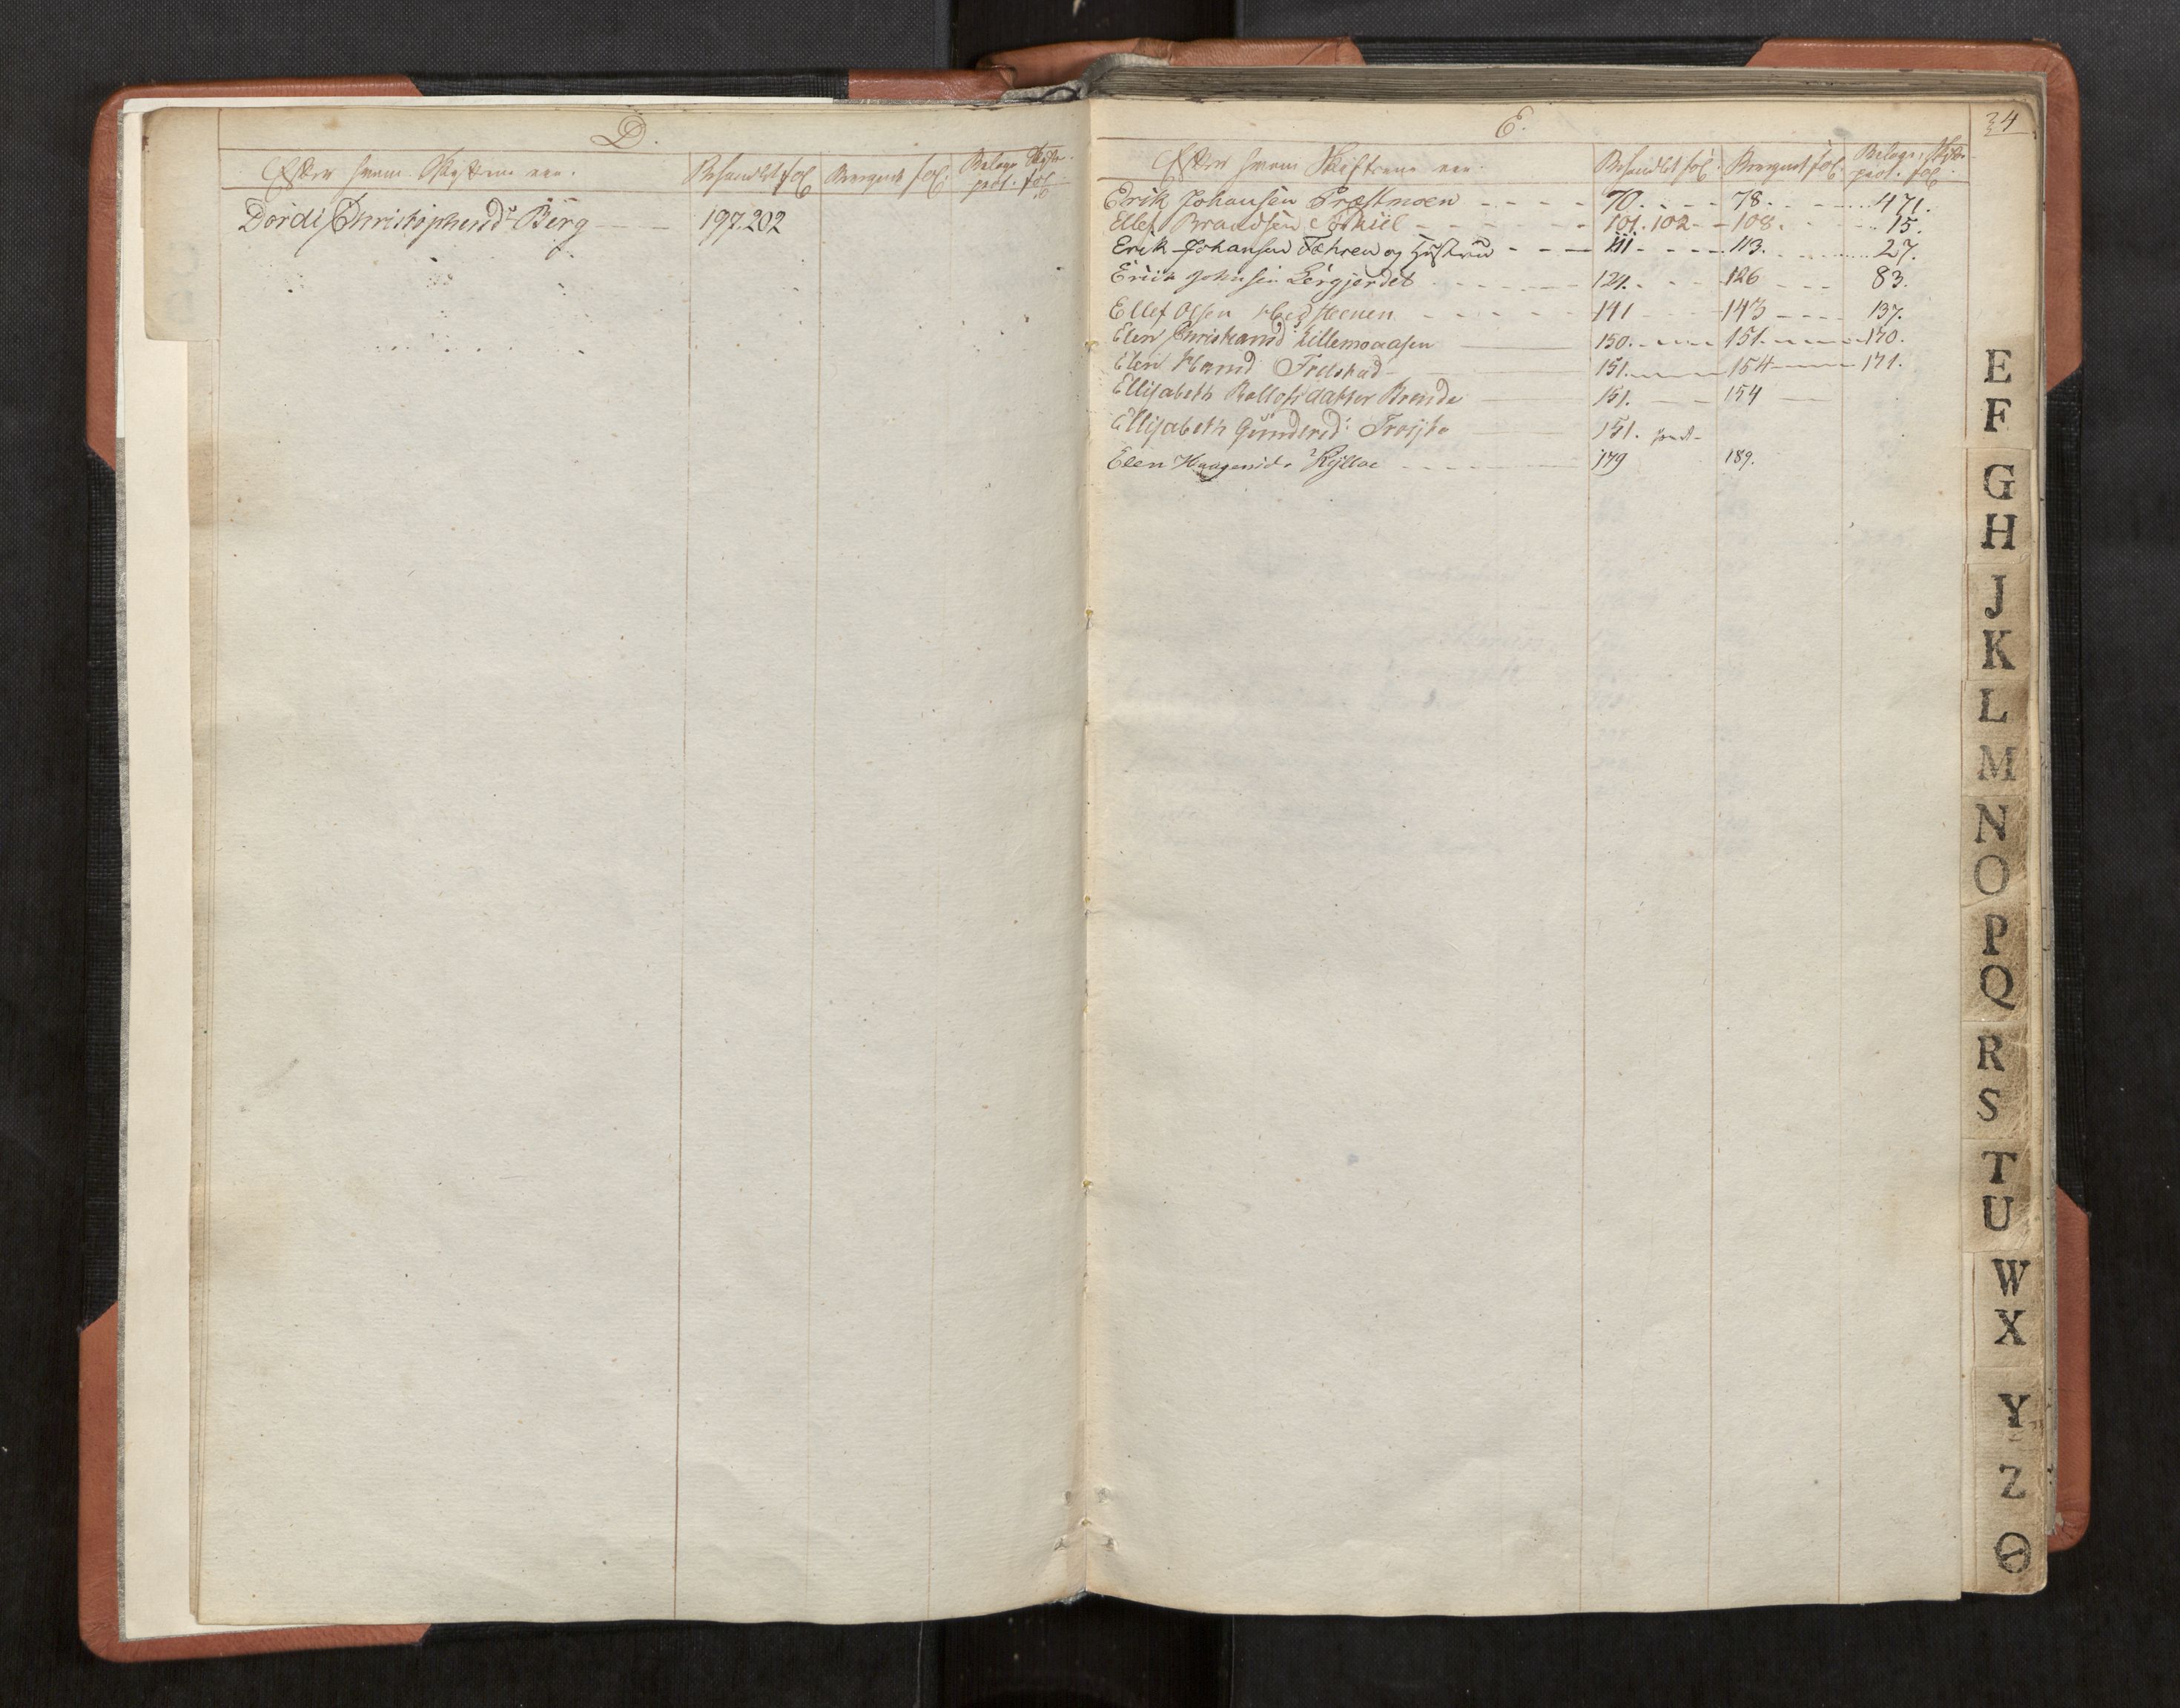 D.
Efter hvem Skiftene ere. Behandlet fol. Beregnet fol. Belags Skifte-
prot. fol.
Dordi Christophersd. Berg 197.202
E. 34
Efter hvem Skifterne ere. Behandlet fol. Beregnet fol. Belags Skifte-
prot. fol.
Erik Johansen Præstmoen 70. 78. 471.
Ellef Brandsen 101.102 108. 15.
Erik Johansen Fæhren og Hustrue 111 113. 27.
Erik Johnsen Leergjerdet 124. 126 83.
Ellef Olsen Hegsteenen 141 143 137.
Elen Christiansd. Lillemoaasen 150. 151. 170.
Elen Hansd. Frelstad 151. 154 171.
Ellisabeth Rollofsdatter Brende 151. 154
Ellisabeth Gundersd. 151.
Elen Haagensd. 179 189.
E
F
G
H
J
K
L
M
N
O
P
Q
R
S
T
U
W
X
Y
Z
Ø